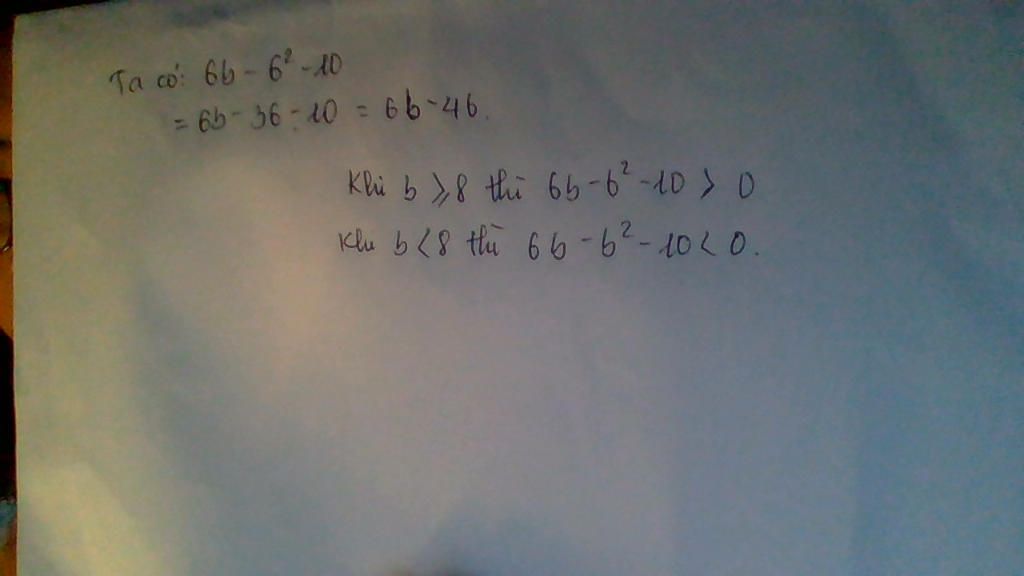 Ta có: 6b - 6² - 10
= 6b - 36 - 10 = 6b - 46.
Khi b ⩾ 8 thì 6b - 6² - 10 > 0
Khi b < 8 thì 6b - b² - 10 < 0.